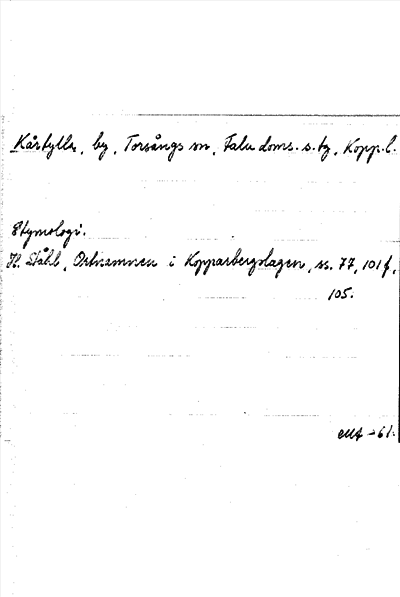 Kårtylla, by, Torsångs sn, Falu doms. s. tg, Kopp. l.
Etymologi.
H. Ståhl, Ortnamnen i Kopparbergslagen, ss. 77, 101 f,
105.
-61.